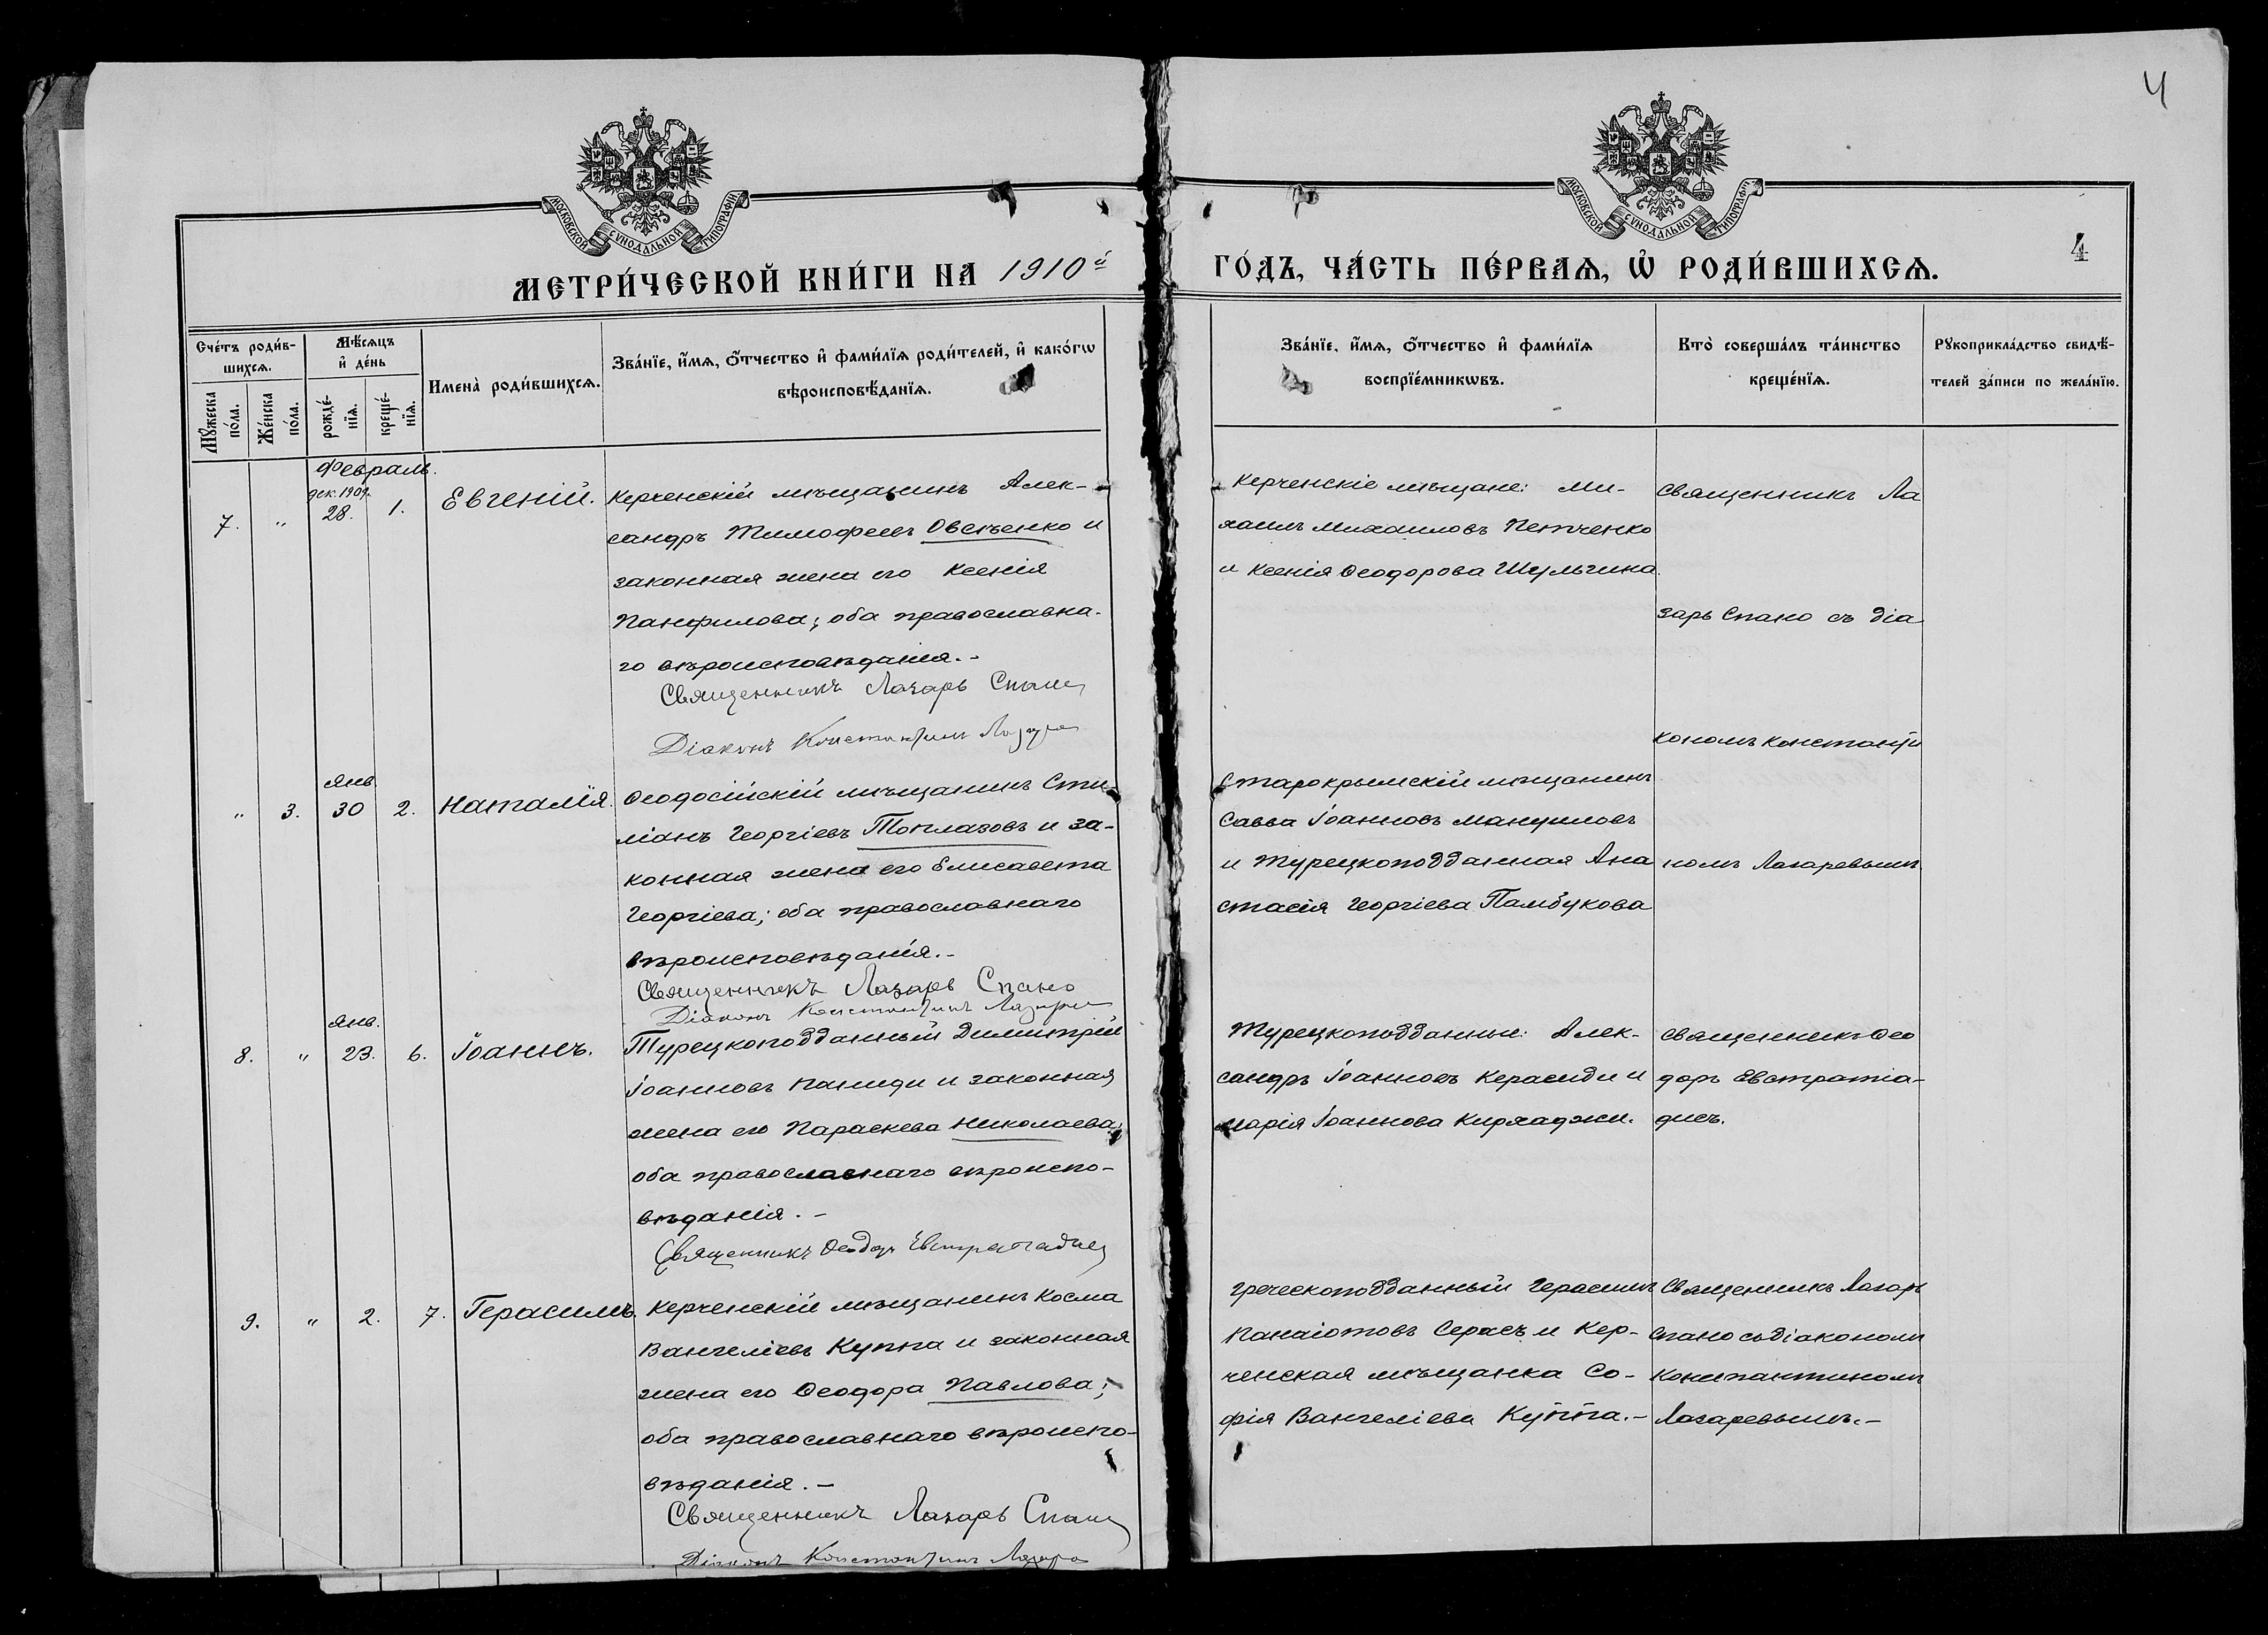 4
МОСКОВСКОЙ СѴНОДАЛЬНОЙ ТИПОГРАФІИ
МОСКОВСКОЙ СѴНОДАЛЬНОЙ ТИПОГРАФІИ
4
МЕТРИ́ЧЕСКОЙ КНИ́ГИ НА 1910й
ГО́ДЪ, ЧА́СТЬ ПЕ́РВАѦ, Ѡ҆ РОДИ́ВШИХСѦ.
Сче́тъ роди́в-
шихсѧ.
Мѣ́сѧцъ
и҆ де́нь
Имена̀ роди́вшихсѧ.
Зва́нїе, и҆́мѧ, ѻ҆́тчество и҆ фами́лїѧ роди́телей, и҆ како́гѡ
вѣроисповѣ́данїѧ.
Мꙋ́жеска
по́ла.
Же́нска
по́ла.
рожде́-
нїѧ.
креще́-
нїѧ.
Зва́нїе, и҆́мѧ, ѻ҆́тчество и҆ фами́лїѧ
воспрїе́мникѡвъ.
Кто̀ соверша́лъ та́инство
креще́нїѧ.
Рꙋкоприкла́дство свидѣ́-
телей за́писи по жела́нїю.
Февраль.
дек. 1909.
7. " 28. 1. Евгеній.
Керченскій мѣщанинъ Алек-
сандръ Тимофеевъ Овсѣенко и
законная жена его Ксенія
Панфилова; оба православна-
го вѣроисповѣданія.-
Священникъ Лазарь Спано
Діаконъ Константинъ
Керченскіе мѣщане: Ми-
хаилъ Михаиловъ Петченко
и Ксенія Ѳеодорова Шульгина.
Священникъ Ла
зарь Спано съ діа
кономъ Константи
номъ Лазаревымъ
янв.
" 3. 30 2. Наталія.
Ѳеодосійскій мѣщанинъ Сти-
ліанъ Георгіевъ Топлазовъ и за-
конная жена его Елисавета
Георгіева; оба православнаго
вѣроисповѣданія.-
Священникъ Лазарь Спано
Діаконъ Константинъ
Старокрымскій мѣщанинъ
Савва Іоанновъ Мануиловъ
и турецкоподданная Ана
стасія Георгіева Памбукова
янв.
8. " 23. 6. Іоаннъ.
Турецкоподданный Димитрій
Іоанновъ Паниди и законная
жена его Параскева Николаева;
оба православнаго вѣроиспо-
вѣданія.-
Священникъ Ѳеодоръ Евстратіадис
Турецкоподданные: Алек-
сандръ Іоанновъ Керасиди и
Марія Іоаннова Кирхаджи.
Священникъ Ѳео
доръ Евстратіа-
дисъ.
9. " 2. 7. Герасимъ.
Керченскій мѣщанинъ Косма
Вангеліевъ Куппа и законная
жена его Ѳеодора Павлова;
оба православнаго вѣроиспо-
вѣданія.-
Священникъ Лазарь Спано
Діаконъ Константинъ
Греческоподданный Герасимъ
Панаіотовъ Серасъ и Кер-
ченская мѣщанка Со-
фія Вангеліева Куппа.-
Священникъ Лазарь
Спано съ діакономъ
Константиномъ
Лазаревымъ.-